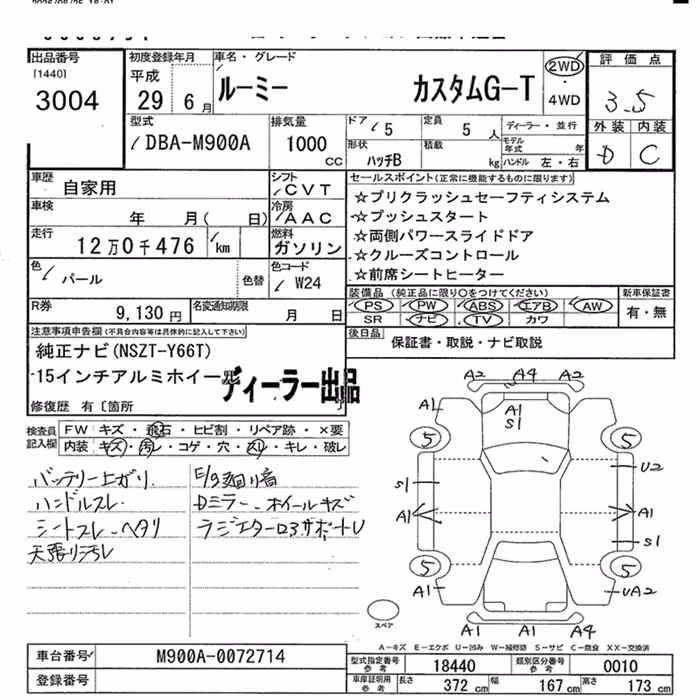 2026/06/26 18:01
出品番号
[1440]
3004
初度登録年月
平成
29 6 月
車名・グレード
ルーミー カスタムG-T
2WD
・
4WD
評価点
3.5
外装 内装
D C
型式
DBA-M900A
排気量
1000
CC
ドア
5
定員
5 人
形状
ハッチB
積載
kg
ディーラー・並行
モデル年式 年
ハンドル 左・右
車歴
自家用
シフト
CVT
車検
年 月( 日)
冷房
AAC
走行
12万0千476 km
燃料
ガソリン
色
パール
色替
色コード
W24
R券
9,130 円
名変通知期限
月 日
セールスポイント(正常に機能するものに限ります)
☆プリクラッシュセーフティシステム
☆プッシュスタート
☆両側パワースライドドア
☆クルーズコントロール
☆前席シートヒーター
装備品 (純正品に限り○をつけてください)
PS PW ABS エアB AW
SR ナビ TV カワ
新車保証書
有・無
後日品
保証書・取説・ナビ取説
注意事項申告欄(不具合内容等は具体的に記入して下さい)
純正ナビ(NSZT-Y66T)
15インチアルミホイール
ディーラー出品
修復歴 有〔箇所 〕
検査員記入欄
FW キズ・飛石・ヒビ割・リペア跡・×要
内装 キズ・汚レ・コゲ・穴・スリ・キレ・破レ
バッテリー上がり
ハンドルスレ
シートスレ・ヘタリ
天張り汚レ
E/g廻り音
Dミラー・ホイールキズ
ラジエターロアサポートU
A2 A4 A2
A1
A1
S1
5 5
U2
S1
A1 A1
S1
5 5
A1 UA2
A1 A1 A4
スペア
A-キズ E-エクボ U-凹み W-補修跡 S-サビ C-腐食 XX-交換済
車台番号
M900A-0072714
登録番号
型式指定番号
参考
18440
類別区分番号
参考
0010
車庫証明用
参考
長さ 372 cm 幅 167 cm 高さ 173 cm